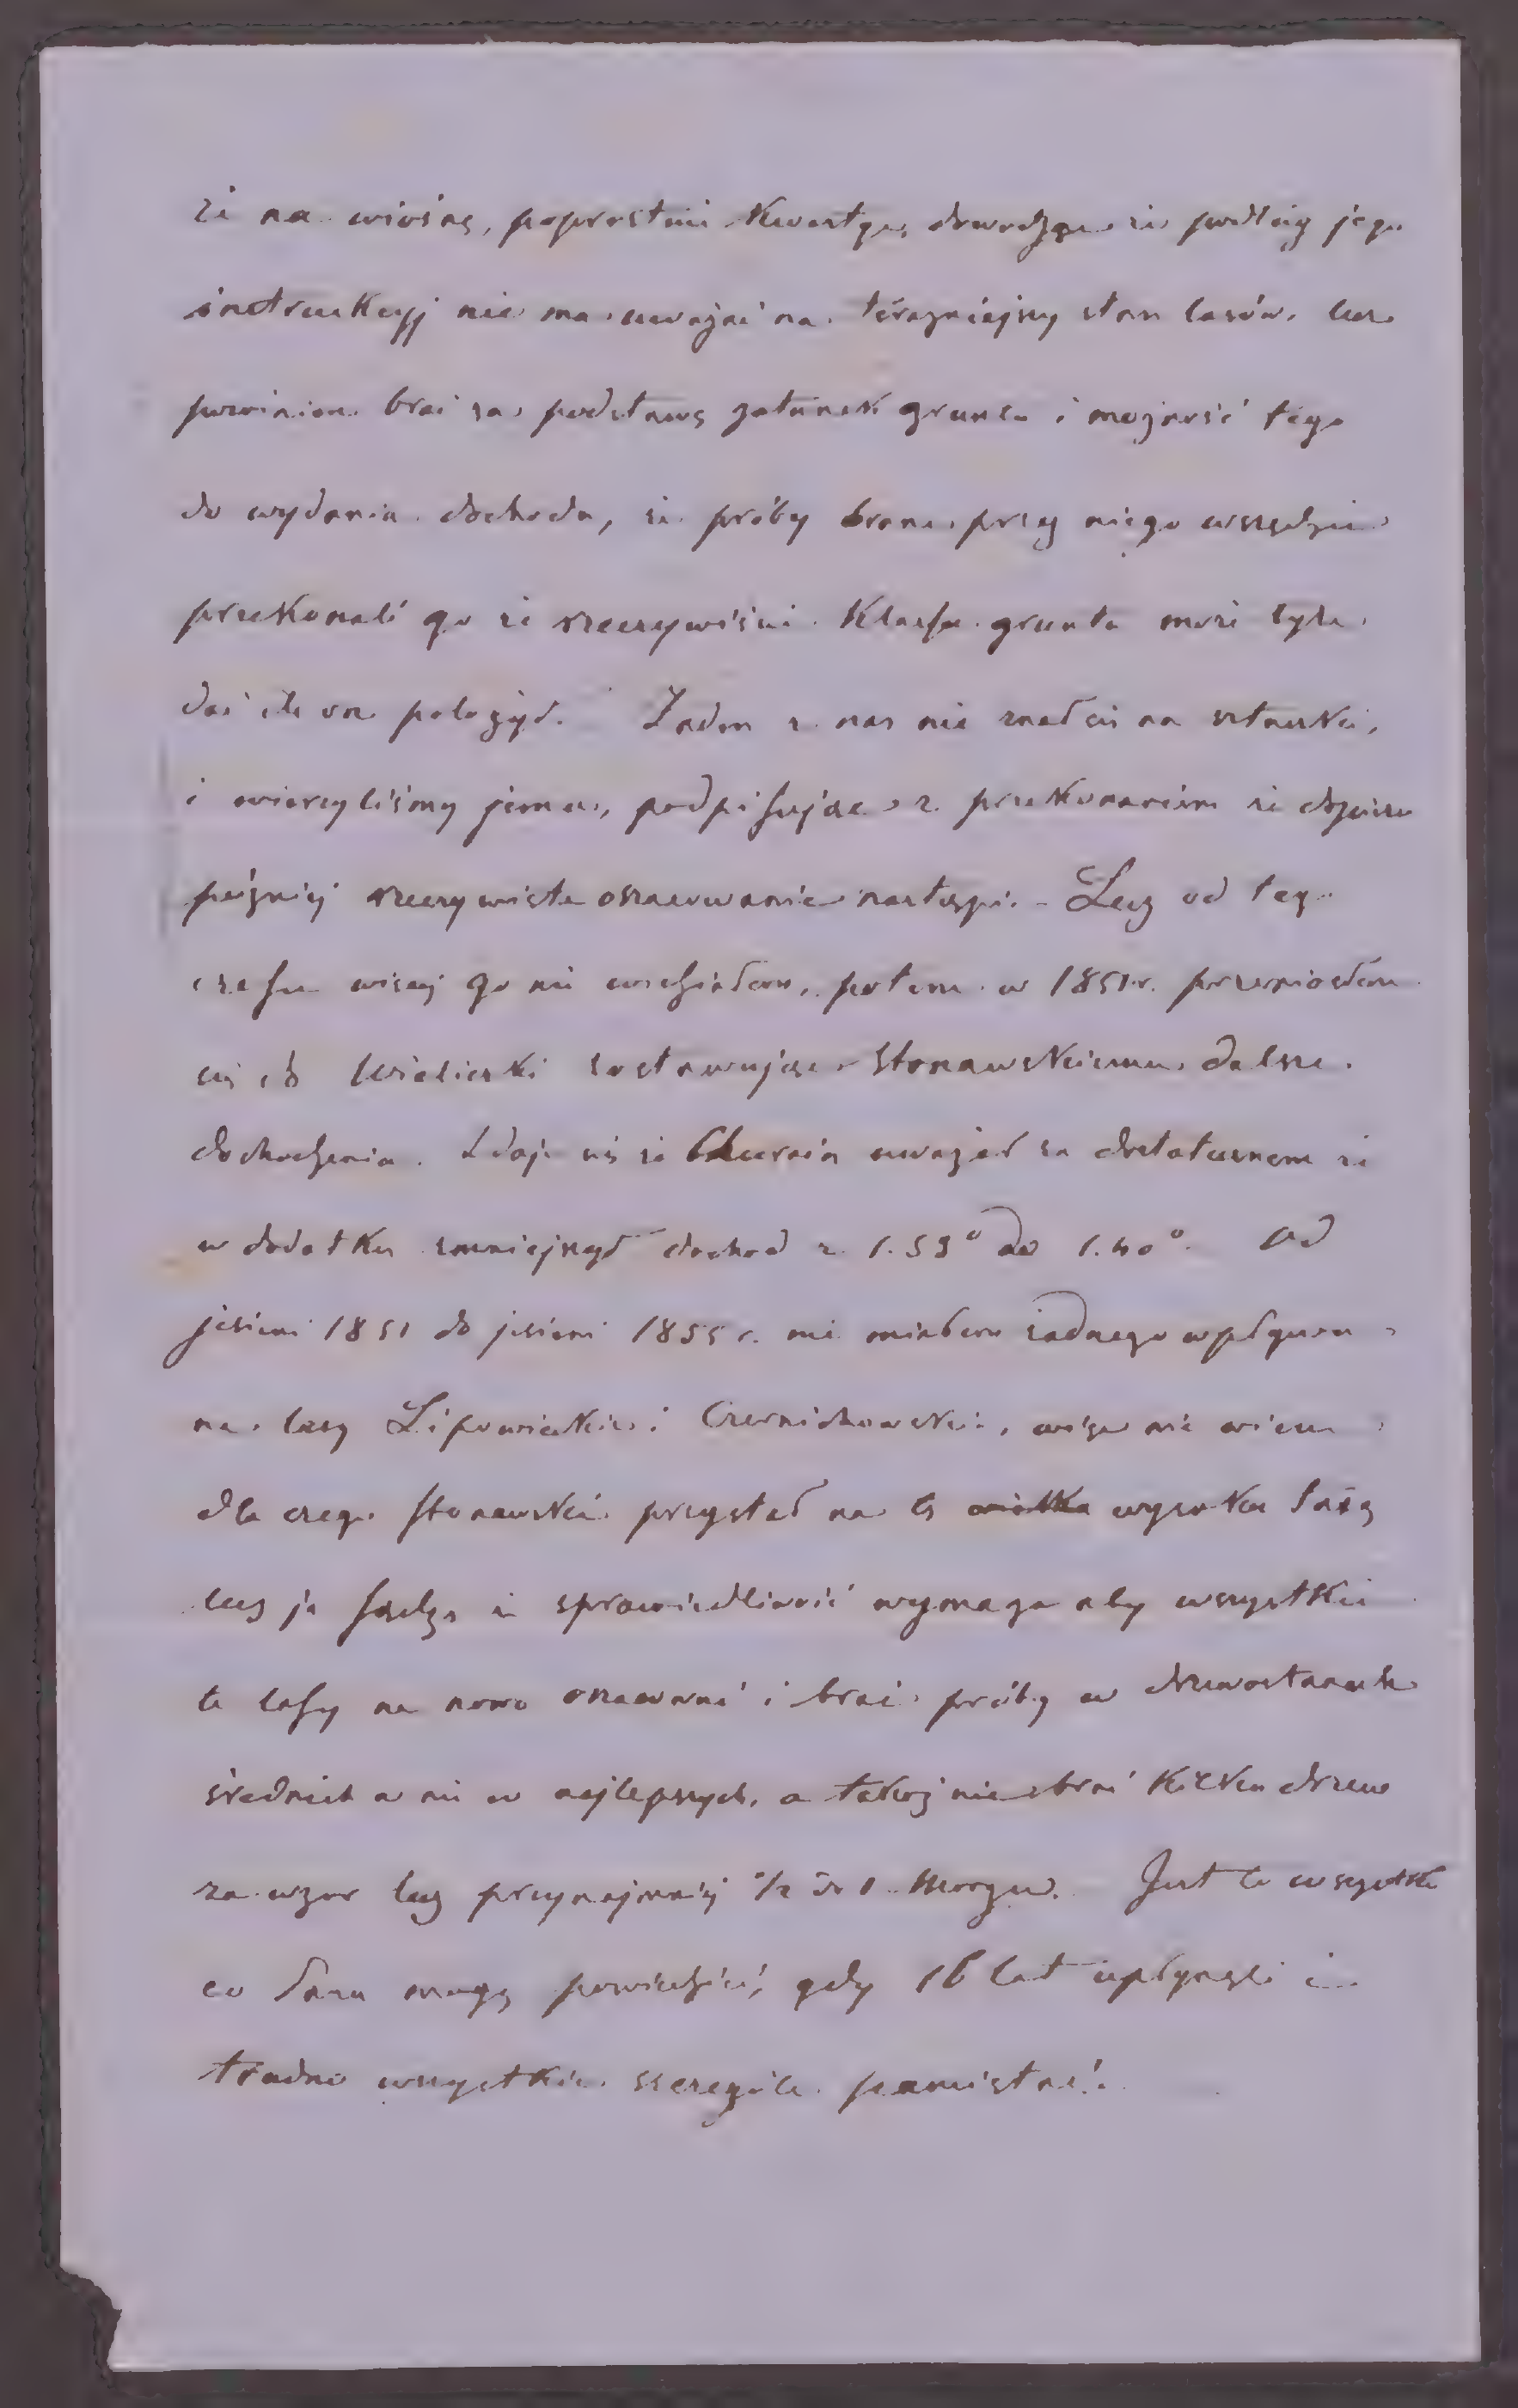 że na wiosnę, poprostmi Kwestyę, dowodząc że podług jego
instrukcyj nie ma uważać na teraźniejszy stan lasów, lecz
powinien brać za podstawę gatunek gruntu i możność tego
do wydania dochodu, że próby brane przez niego wszędzie
przekonali go że rzeczywiście Klassa gruntu może tyle
dać ile on położył. Żaden z nas nie znał się na sztuki,
i wierzyliśmy jemu, podpisując z przekonaniem że dopiero
później rzeczywiste oszacowanie nastąpi. - Lecz od tego
czasu więcej go nie widziałem, potem w 1851 r. przeniosłem
się do Wieliczki zostawując Stonawskiemu dalsze
dochodzenia. Zdaje się że uważał za dostatecznem że
w dodatku zmniejszył dochod z 1.53° do 1.40°. Od
jesieni 1851 do jesieni 1855 r. nie miałem żadnego wpływu
na lasy Lipowieckie i Czernichowskie, więc nie wiem
dla czego Stonawski przystał na tę wysoką
lecz ja sądzę że sprawiedliwość wymaga aby wszystkie
te lasy na nowo oszacować i brać próby w drzewostanach
średnich a nie w najlepszych, a także nie brać Kilka drzew
za wzor lecz przynajmniej 1/2 do 1 Morgu. Jest to wszystko
co Panu mogę powiedzieć, gdy 16 lat upłynęli i
trudno wszystkie szczegóły pamiętać.